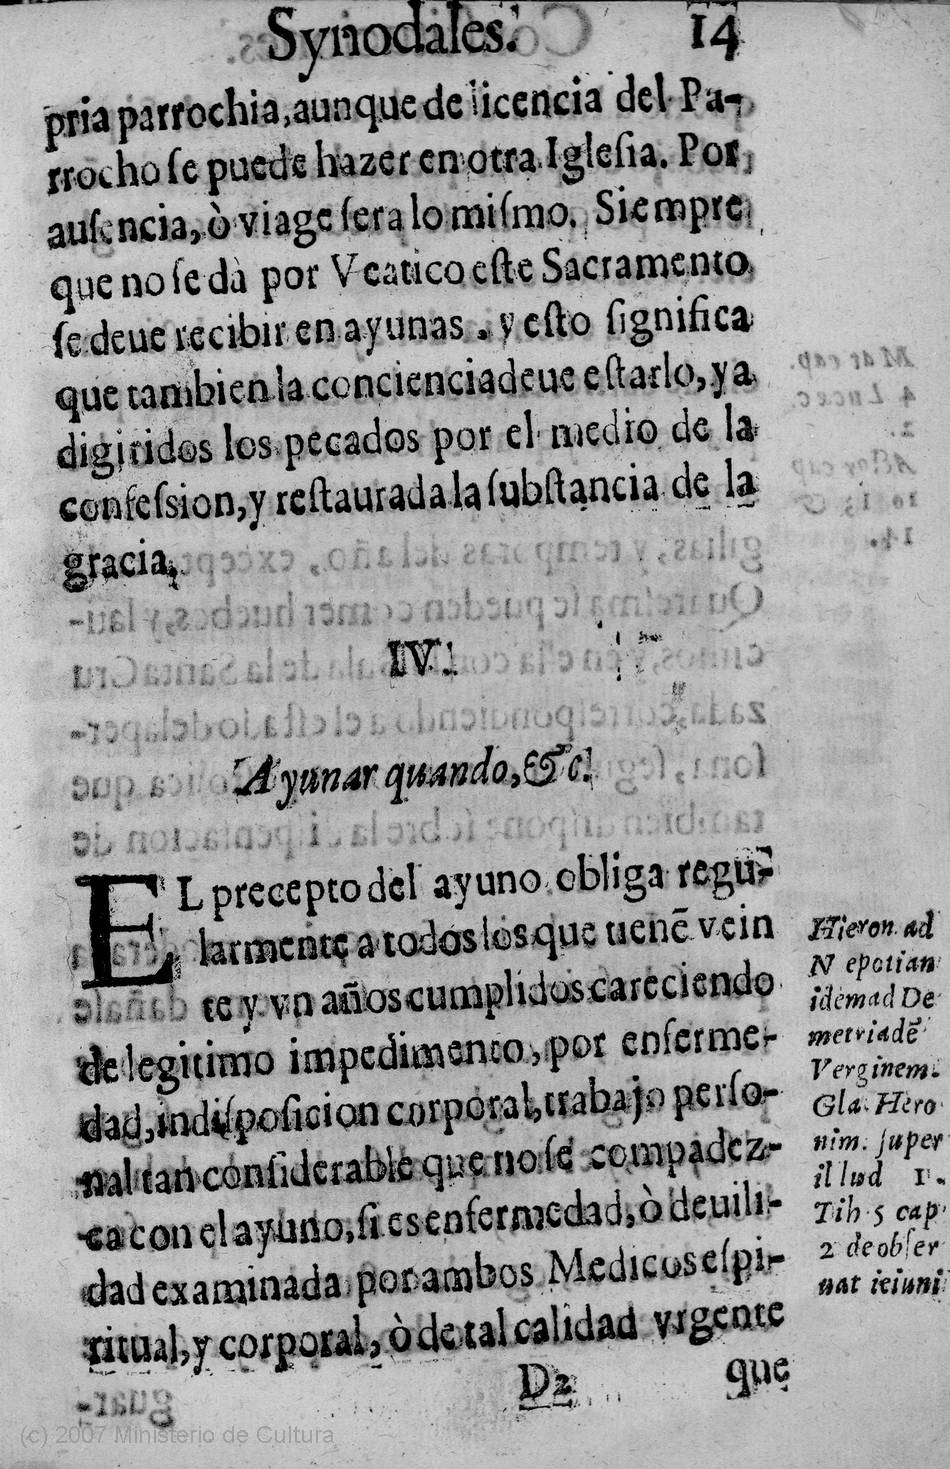 Synodales. 14
pria parrochia, aunque de licencia del Pa-
rrocho se puede hazer en otra Iglesia. Por
ausencia, ò viage sera lo mismo. Siempre
que no se dà por Veatico este Sacramento
se deue recibir en ayunas. y esto significa
que tambien la conciencia deue estarlo, ya
digiridos los pecados por el medio de la
confession, y restaurada la substancia de la
gracia.
IV.
Ayunar quando, &c.
EL precepto del ayuno obliga regu-
larmente a todos los que tienē vein
te y vn años cumplidos careciendo
de legitimo impedimento, por enferme-
dad, indisposicion corporal, trabajo perso-
nal tan considerable que no se compadez-
ca con el ayuno, si es enfermedad, ò deuili-
dad examinada por ambos Medicos espi-
ritual, y corporal, ò de tal calidad vrgente
D2 que
Hieron. ad
Nepotian
idem ad De
metriadē
Verginem.
Gla. Hero
nim. super
illud 1.
Tih. 5 cap.
2 de obser
uat ieiuni
(c) 2007 Ministerio de Cultura